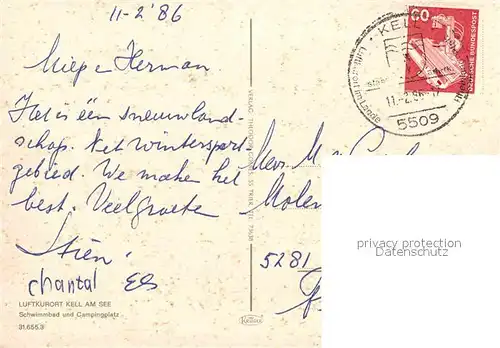 11-2'86
Miep & Herman
Het is één sneeuwland-
schap. Net wintersport
gebied. We maken het
best. Veel groeten
Stien.
chantal Els
LUFTKURORT KELL AM SEE
Schwimmbad und Campingplatz
31.655.3
Krüger
60
DEUTSCHE BUNDESPOST
KELL
11.-2.86
5509
Molen
5281
privacy protection
Datenschutz